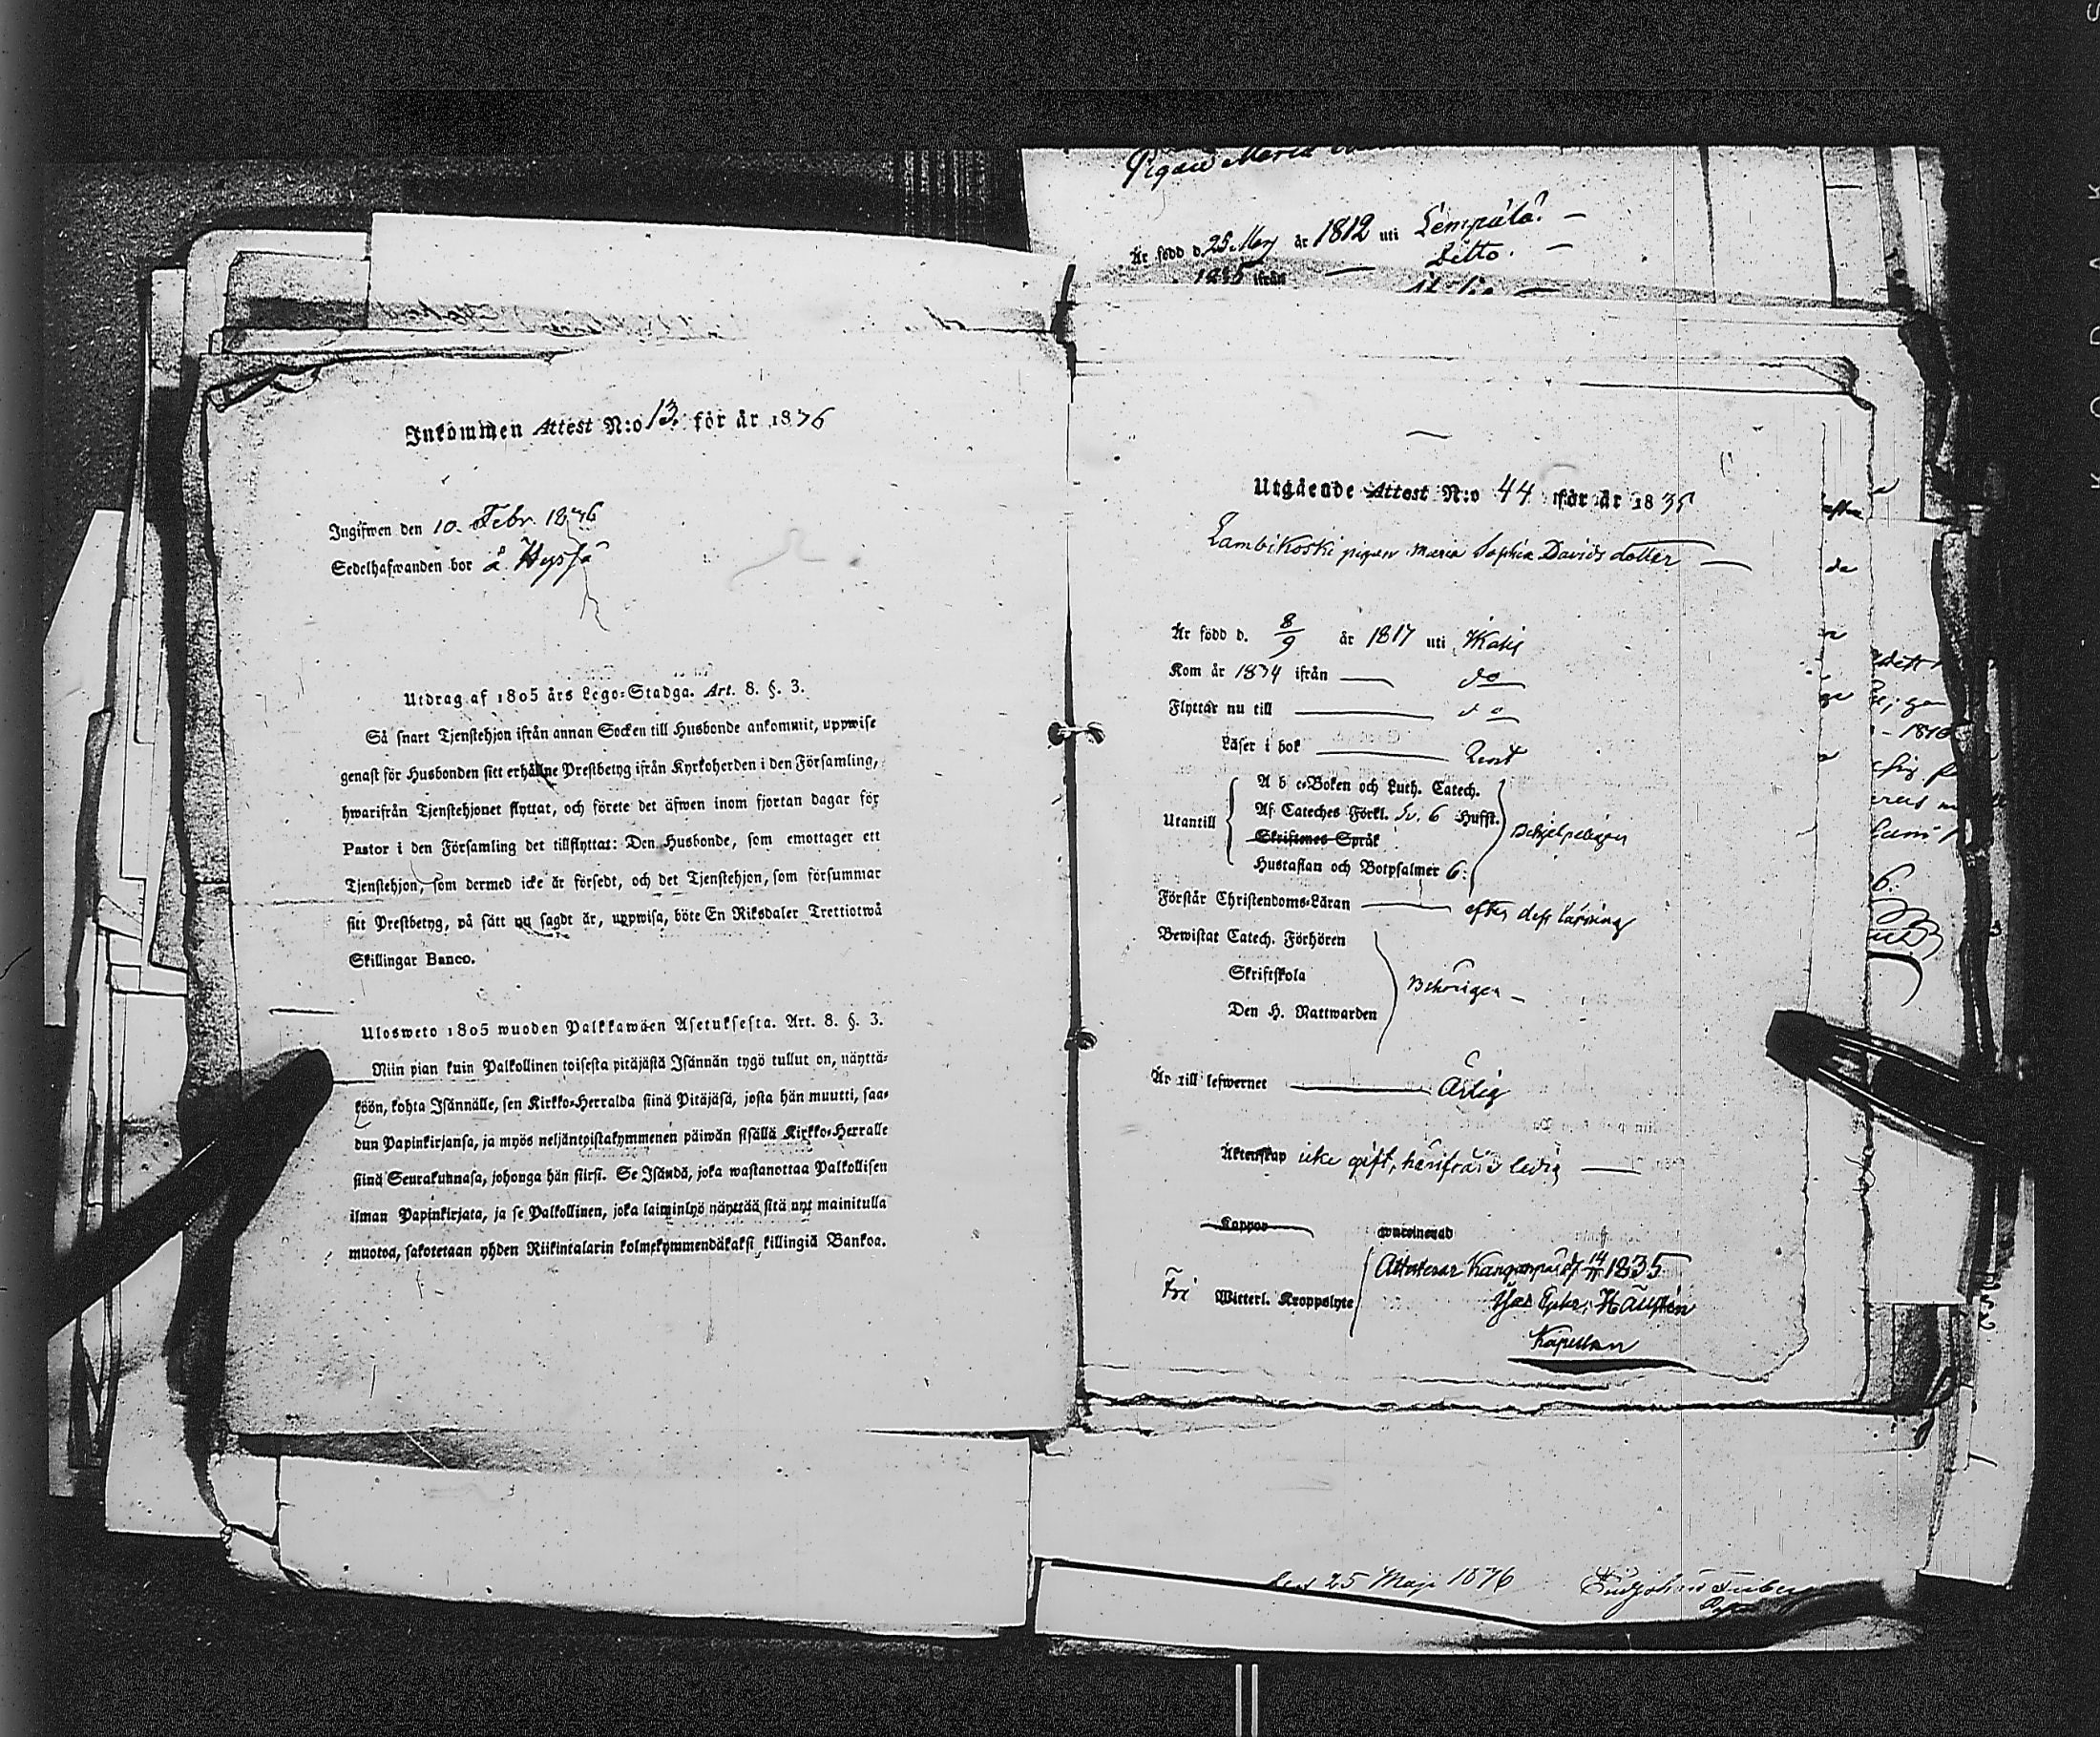 Pigan Maria
Är född d. 25 Maj år 1812 uti Lempälä. —
Ditto. —
1835 ifrån —
Inkommen Attest N:o 13. för år 1836
Ingifwen den 10. Febr. 1836
Sedelhafwanden bor å
Utdrag af 1805 års Lego-Stadga. Art. 8. §. 3.
Så snart Tjenstehjon ifrån annan Socken till Husbonde ankommit, uppwise
genast för Husbonden sitt erhållne Prestbetyg ifrån Kyrkoherden i den Församling,
hwarifrån Tjenstehjonet flyttat, och förete det äfwen inom fjortan dagar för
Pastor i den Församling det tillflyttat: Den Husbonde, som emottager ett
Tjenstehjon, som dermed icke är försedt, och det Tjenstehjon, som försummar
sitt Prestbetyg, på sätt nu sagdt är, uppwisa, böte En Riksdaler Trettiotwå
Skillingar Banco.
Ulosweto 1805 wuoden Palkkawäen Asetuksesta. Art. 8. §. 3.
Niin pian kuin Palkollinen toisesta pitäjästä Isännän tygö tullut on, näyttä-
köön, kohta Isännälle, sen Kirkko-Herralda siinä Pitäjäsä, josta hän muutti, saa-
dun Papinkirjansa, ja myös neljäntoistakymmenen päiwän sisällä Kirkko-Herralle
siinä Seurakunnasa, johonga hän siirsi. Se Isändä, joka wastanottaa Palkollisen
ilman Papinkirjata, ja se Palkollinen, joka laiminlyö näyttää sitä nyt mainitulla
muotoa, sakotetaan yhden Riikintalarin kolmekymmendäkaksi killingiä Bankoa.
Utgående Attest N:o 44 för år 1835
Lambikoski pigan Maria Sophia Davids dotter —
Är född d. 8/9 år 1817 uti
Kom år 1834 ifrån — do
Flyttar nu till — do
Läser i bok — Rent
Utantill
A b c-Boken och Luth. Catech.
Af Cateches Förkl. Sv. 6 Hufst.
Skriftenes Språk
Hustaflan och Botpsalmer 6:
Förstår Christendoms-Läran — efter
Bewistat Catech. Förhören
Skriftskola
Den H. Nattwarden
Behörigen —
Är till lefwernet — Ärlig
Äktenskap icke gift, härifrån ledig —
Koppor waccinerad
Fri Witterl. Kroppslyte
Attesterar 1835
Kapellan
den 25 Maji 1836